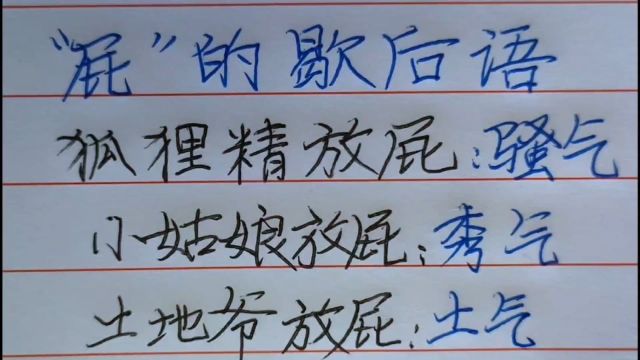 “屁”的歇后语
狐狸精放屁:骚气
小姑娘放屁:秀气
土地爷放屁:土气